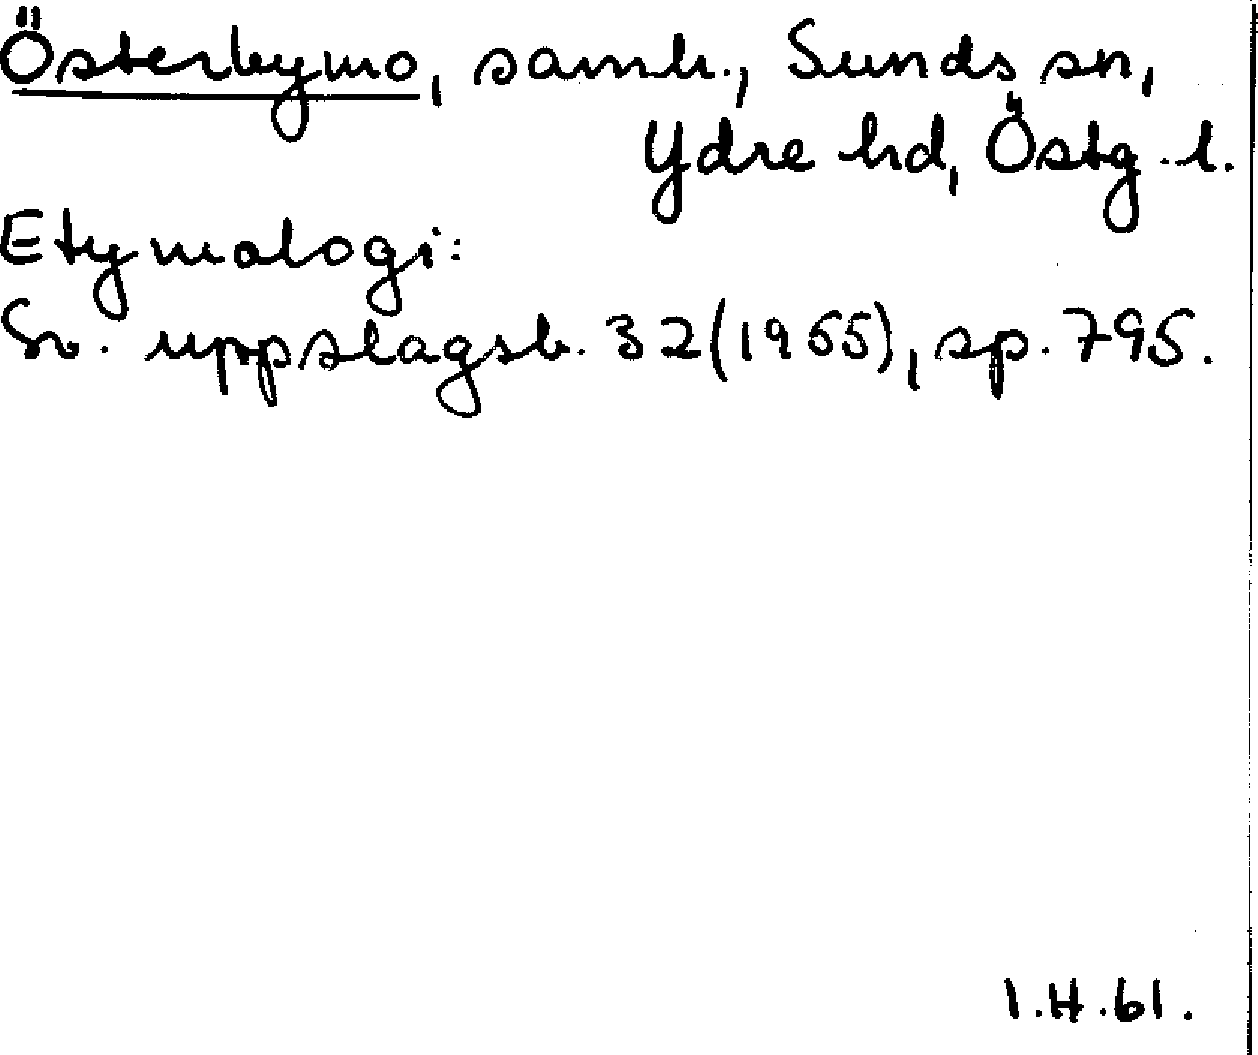 Österbymo, samh., Sunds sn,
Ydre hd, Östg. l.
Etymologi:
Sv. uppslagsb. 32 (1955), sp. 795.
I.H.61.